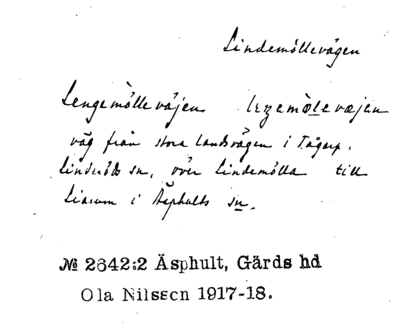 Lindemöllevägen
Lengemölleväjen leŋemölevæjen
väg från stora landsvägen i Tågarp,
Linderöds sn, över Lindemölla till
Liarum i Äsphults sn.
№ 2642:2 Äsphult, Gärds hd
Ola Nilsson 1917-18.